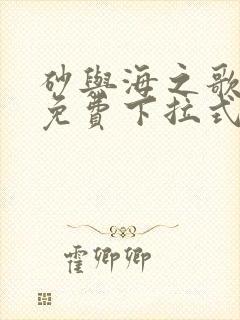 砂與海之歌
免費下拉式
霍卿卿